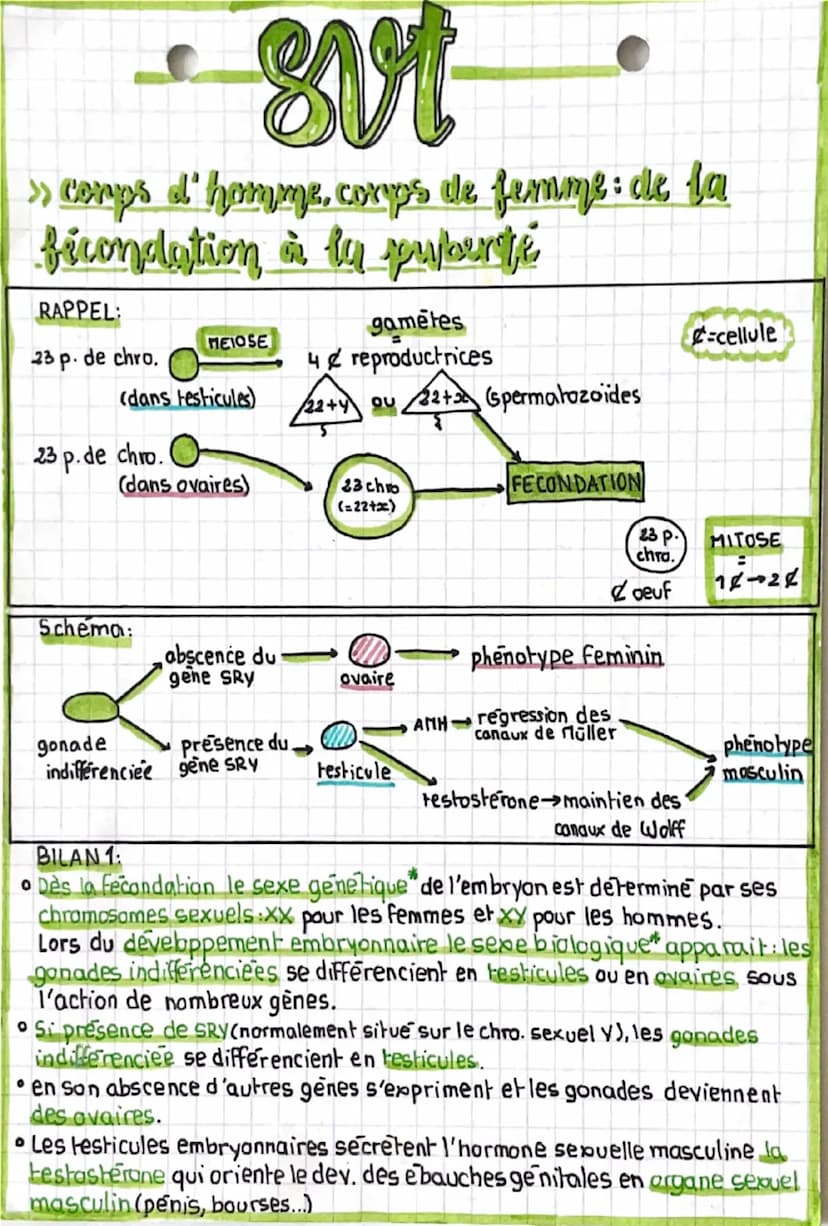 svt
» corps d'homme, corps de femme : de la
fécondation à la puberté
RAPPEL:
gamètes
=
₵=cellule
MEIOSE
23 p. de chro.
4 ₵ reproductrices
(dans testicules)
22+y ou 22+x (spermatozoïdes
23 p. de chro.
(dans ovaires)
23 chro
(=22+x)
FECONDATION
23 p.
chro.
₵ oeuf
MITOSE
=
1₵→2₵
Schéma:
abscence du
gène SRY
ovaire
phénotype féminin
gonade
indifférenciée
présence du
gène SRY
testicule
AMH → régression des
canaux de Müller
testostérone→maintien des
canaux de Wolff
phénotype
masculin
BILAN 1:
° Dès la fécondation le sexe génétique* de l'embryon est déterminé par ses
chromosomes sexuels:XX pour les femmes et XY pour les hommes.
Lors du développement embryonnaire le sexe biologique* apparait: les
gonades indifférenciées se différencient en testicules ou en ovaires sous
l'action de nombreux gènes.
° Si présence de SRY(normalement situé sur le chro. sexuel Y), les gonades
indifférenciée se différencient en testicules.
° en son abscence d'autres gènes s'expriment et les gonades deviennent
des ovaires.
° Les testicules embryonnaires sécrètent l'hormone sexuelle masculine la
testostérone qui oriente le dev. des ébauches génitales en organe sexuel
masculin (pénis, bourses...)